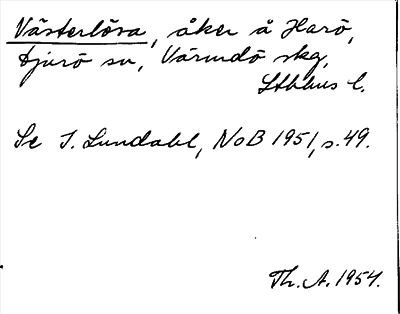 Västerlösa, åker å Harö,
Djurö sn, Värmdö skg,
Sthlms l.
Se I. Lundahl, NoB 1951, s. 49.
Th. A. 1954.